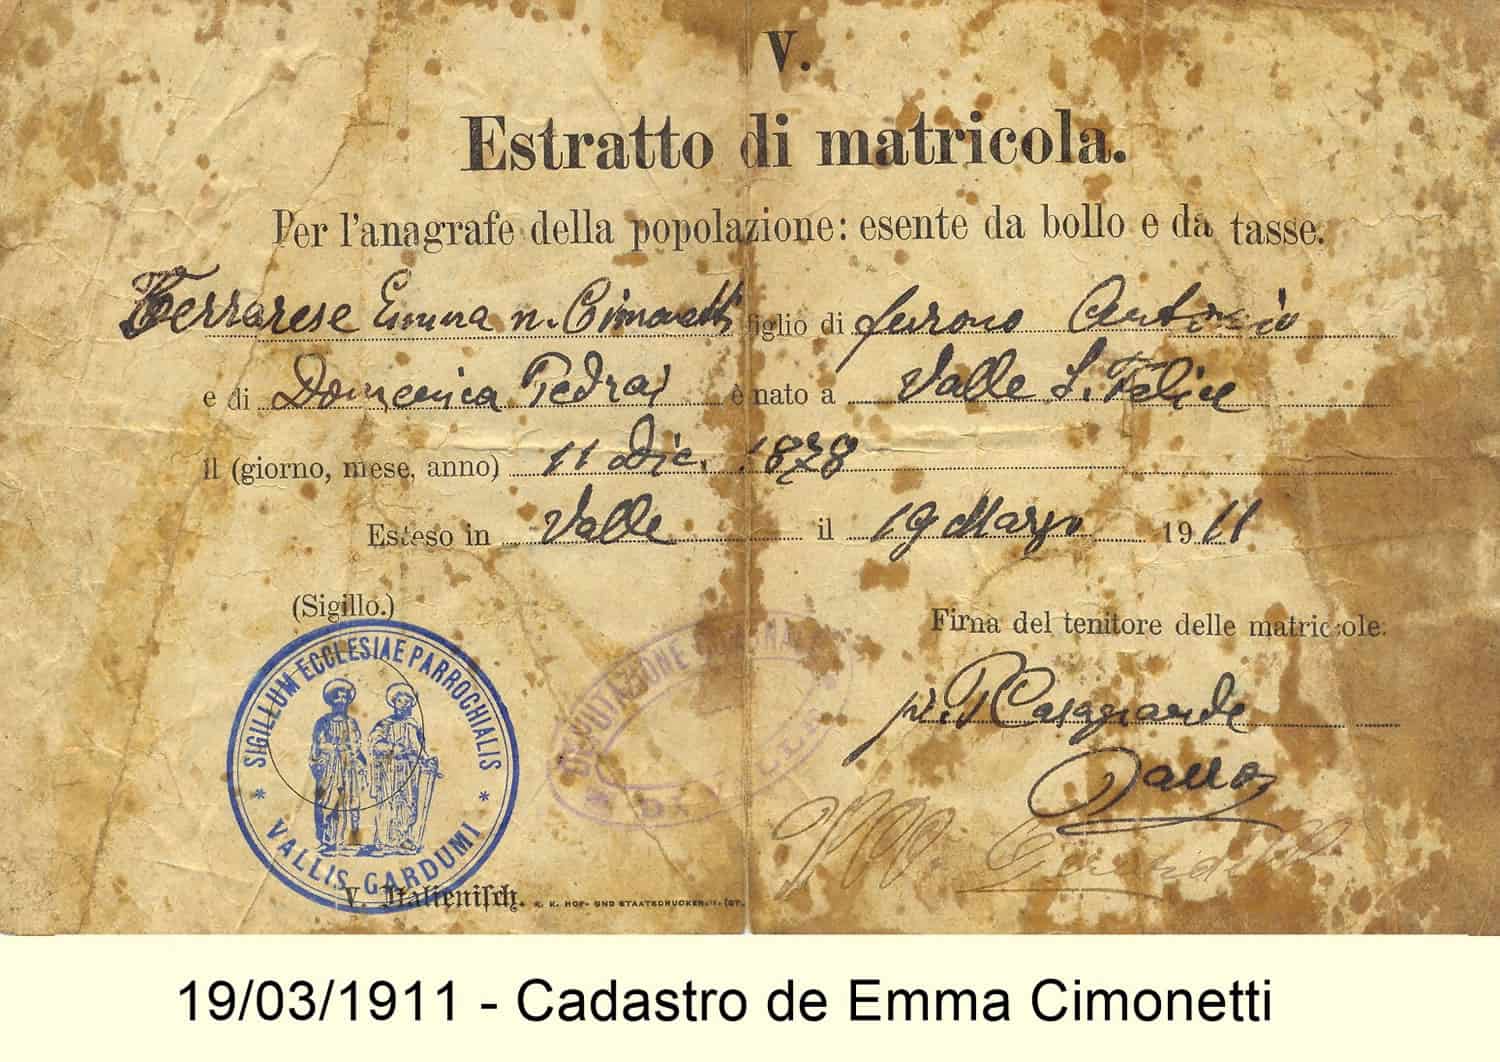 V.
Estratto di matricola.
Per l'anagrafe della popolazione: esente da bollo e da tasse.
Ferrarese Emma n. Cimonetti figlio di Antonio
e di Domenica Pedrai è nato a Valle S. Felice
il (giorno, mese, anno) 11 Dic. 1878
Esteso in Valle il 19 Marzo 1911
(Sigillo.)
Firma del tenitore delle matricole.
SIGILLUM ECCLESIAE PARROCHIALIS
* VALLIS GARDUMI *
DEPUTAZIONE COMUNALE
DI VALLE
Casagrande
V. Italienisch. K. K. HOF- UND STAATSDRUCKEREI.
19/03/1911 - Cadastro de Emma Cimonetti